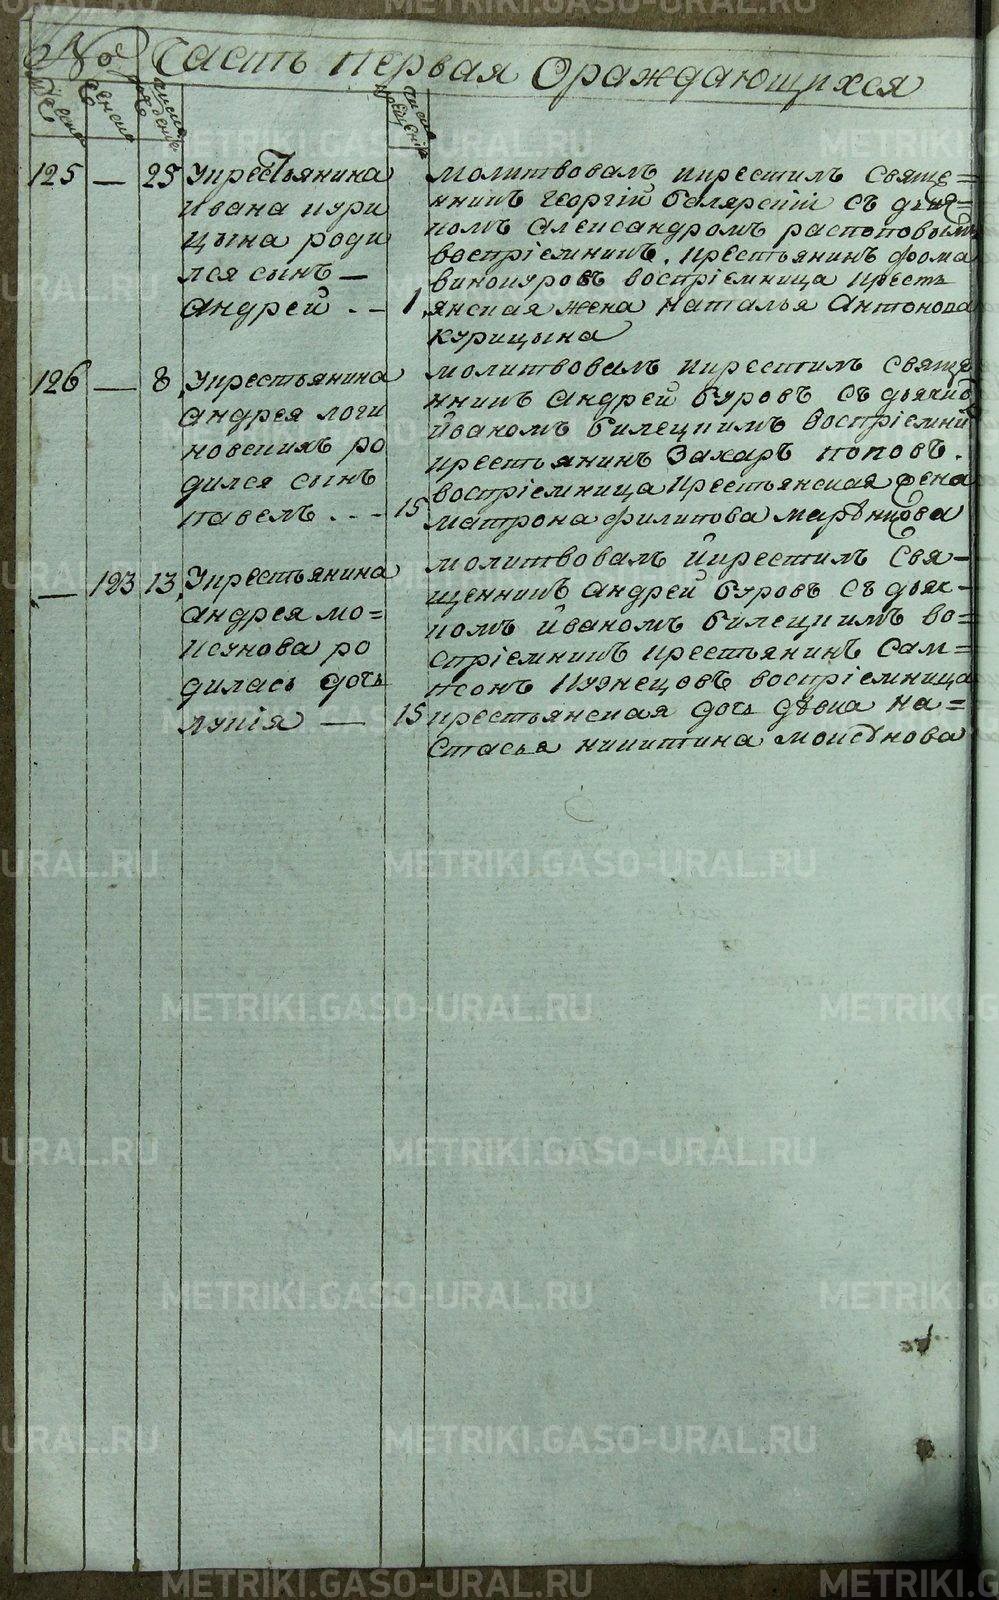 № Часть первая Ораждающихся
мужеска женска число рожденія число крещенія
125 — 25 Укрестьянина
ивана кури
цына роди
лся сынъ —
андрей . — 1
молитвовалъ икрестилъ свяще=
нникъ георгій болярскій съ дьяч=
комъ александромъ распоповымъ
воспріемникъ. крестьянинъ фома
винокуровъ воспріемница кресть
янская жена наталья Антонова
курицына
126 — 8 Укрестьянина
андрея логи
новскихъ ро
дился сынъ
павелъ . — 15
молитвовалъ икрестилъ свяще
нникъ андрей буровъ съ дьячко
йваномъ билецкимъ воспріемни
крестьянинъ Захаръ поповъ.
воспріемница крестьянская жена
матрона филипова
— 123 13 Укрестьянина
андрея мо=
исунова ро
дилась дочь
лукія — 15
молитвовалъ йкрестилъ свя=
щенникъ андрей буровъ съ дьяч=
комъ йваномъ билецкимъ во=
спріемникъ крестьянинъ сам=
псонъ кузнецовъ воспріемница
крестьянская дочь дѣвка на=
стасья никитина моисѣнова
METRIKI.GASO-URAL.RU